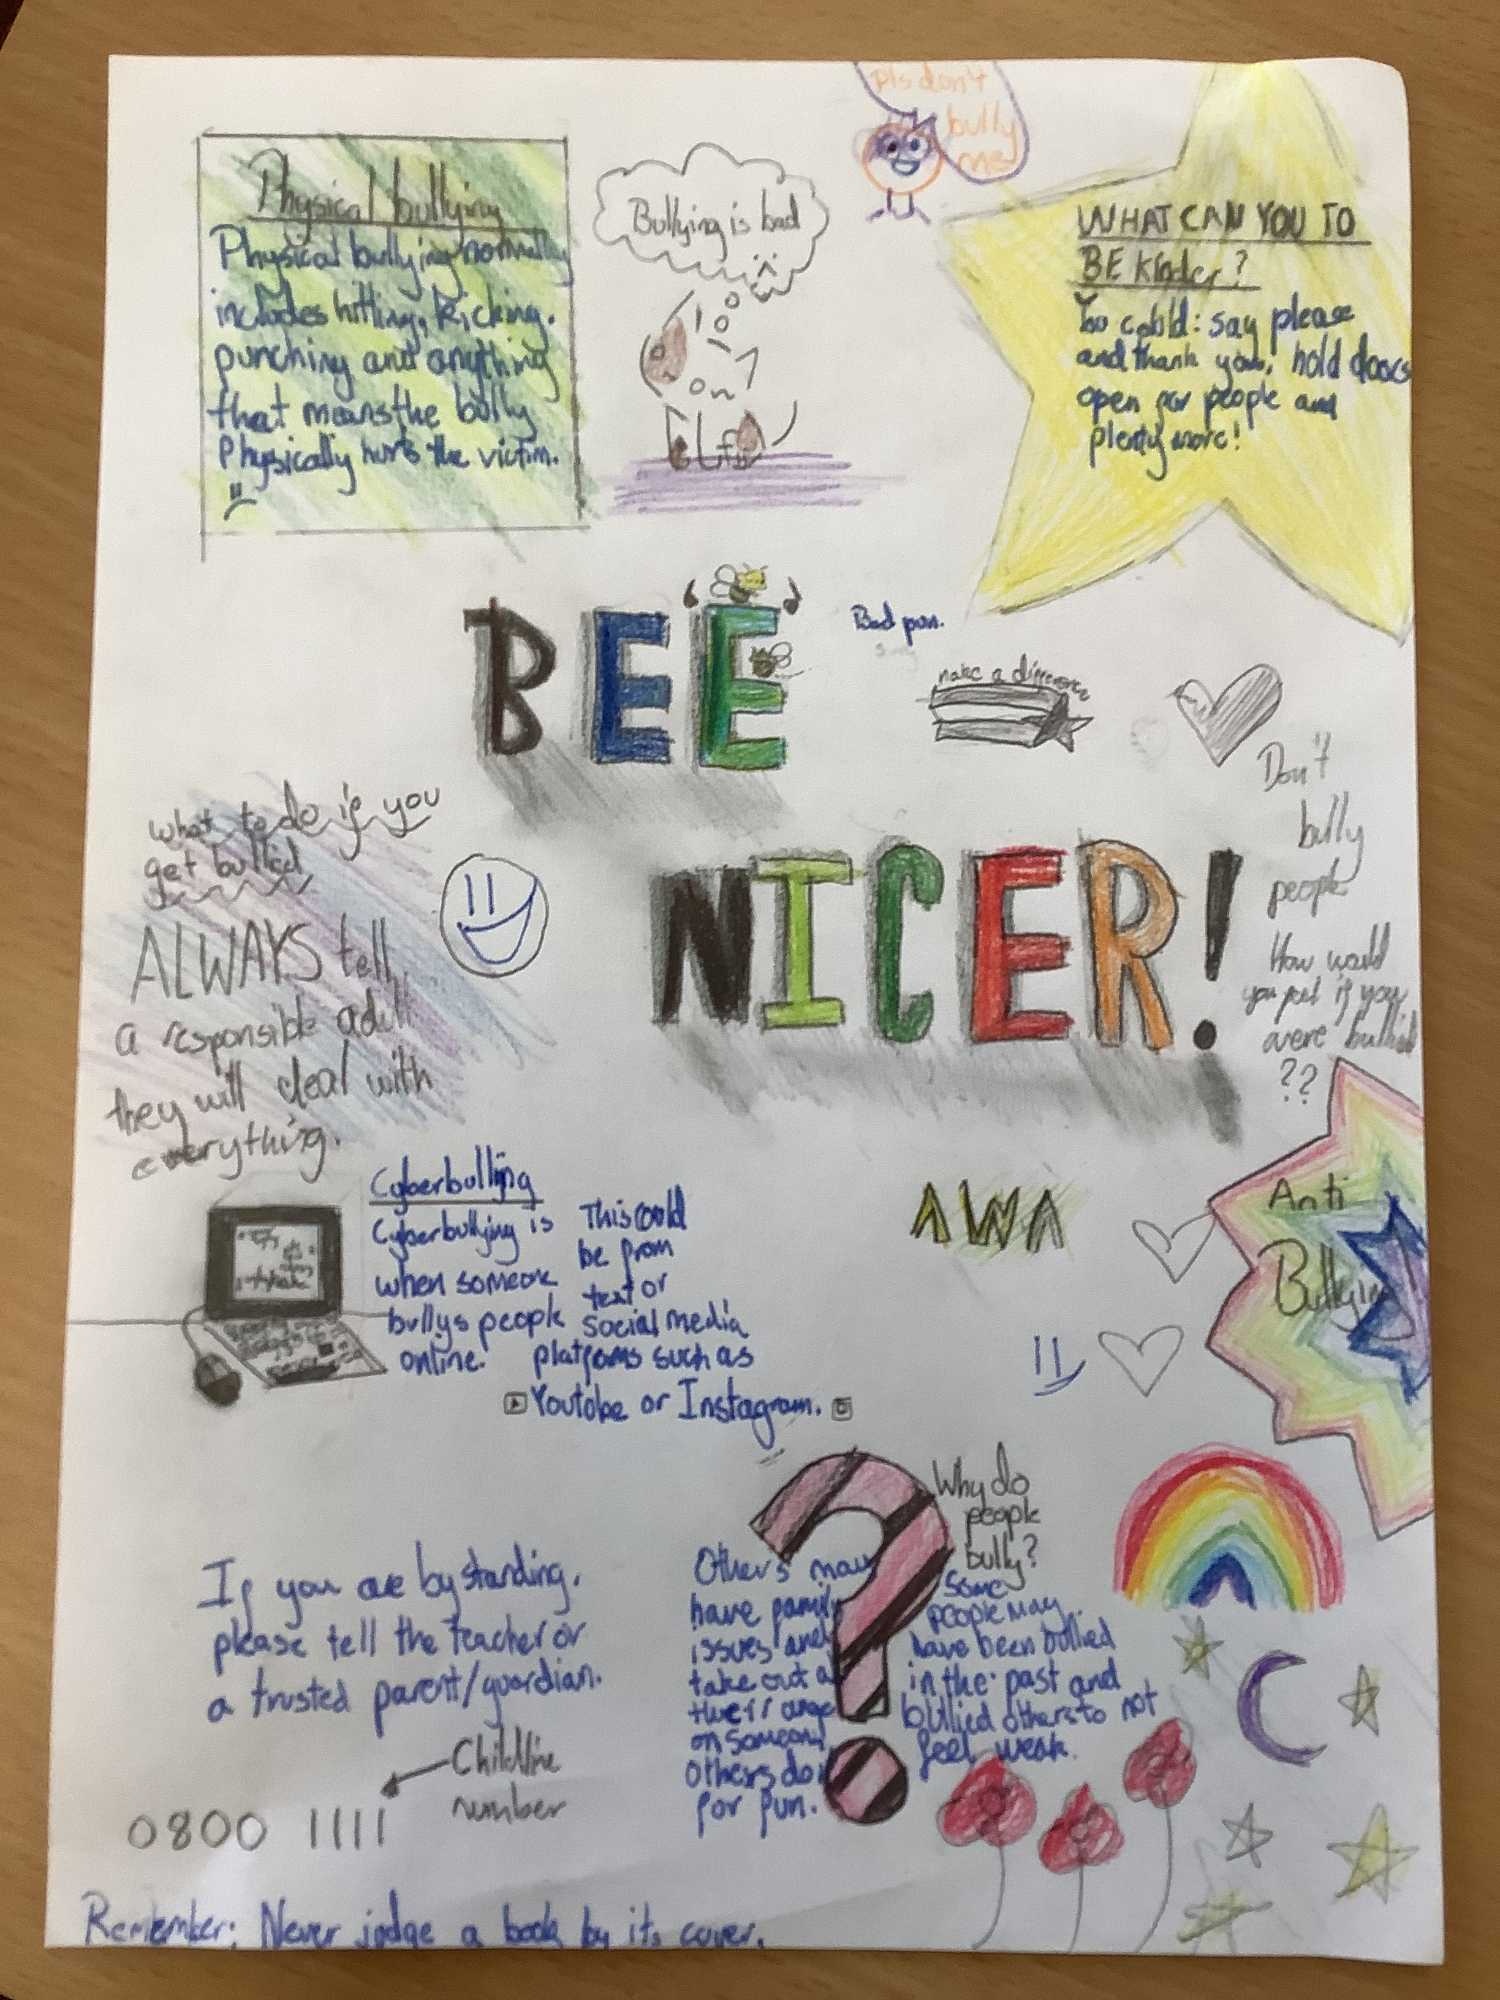 Pls don't
bully
me
Physical bullying
Physical bullying normally
includes hitting, kicking,
punching and anything
that means the bully
Physically hurts the victim.
Bullying is bad
WHAT CAN YOU TO
BE Kinder?
You cobld: say please
and thank you, hold doors
open for people and
plenty more!
BEE
Bad pun.
make a difference
NICER!
Don't
bully
people
How would
you feel if you
were bullied
??
what to do if you
get bullied
ALWAYS tell
a responsible adult
they will deal with
everything.
Cyberbullying
Cyberbullying is
when someone
bullys people
online.
This could
be from
text or
social media
platforms such as
Youtube or Instagram.
AWA
Anti
Bullying
Why do
people
bully?
Some
people may
have been bullied
in the past and
bullied others to not
feel weak.
Others may
have family
issues and
take out a
their ange
on someone
Others do
for fun.
If you are bystanding,
please tell the teacher or
a trusted parent/guardian.
Childline
number
0800 1111
Remember: Never judge a book by its cover.